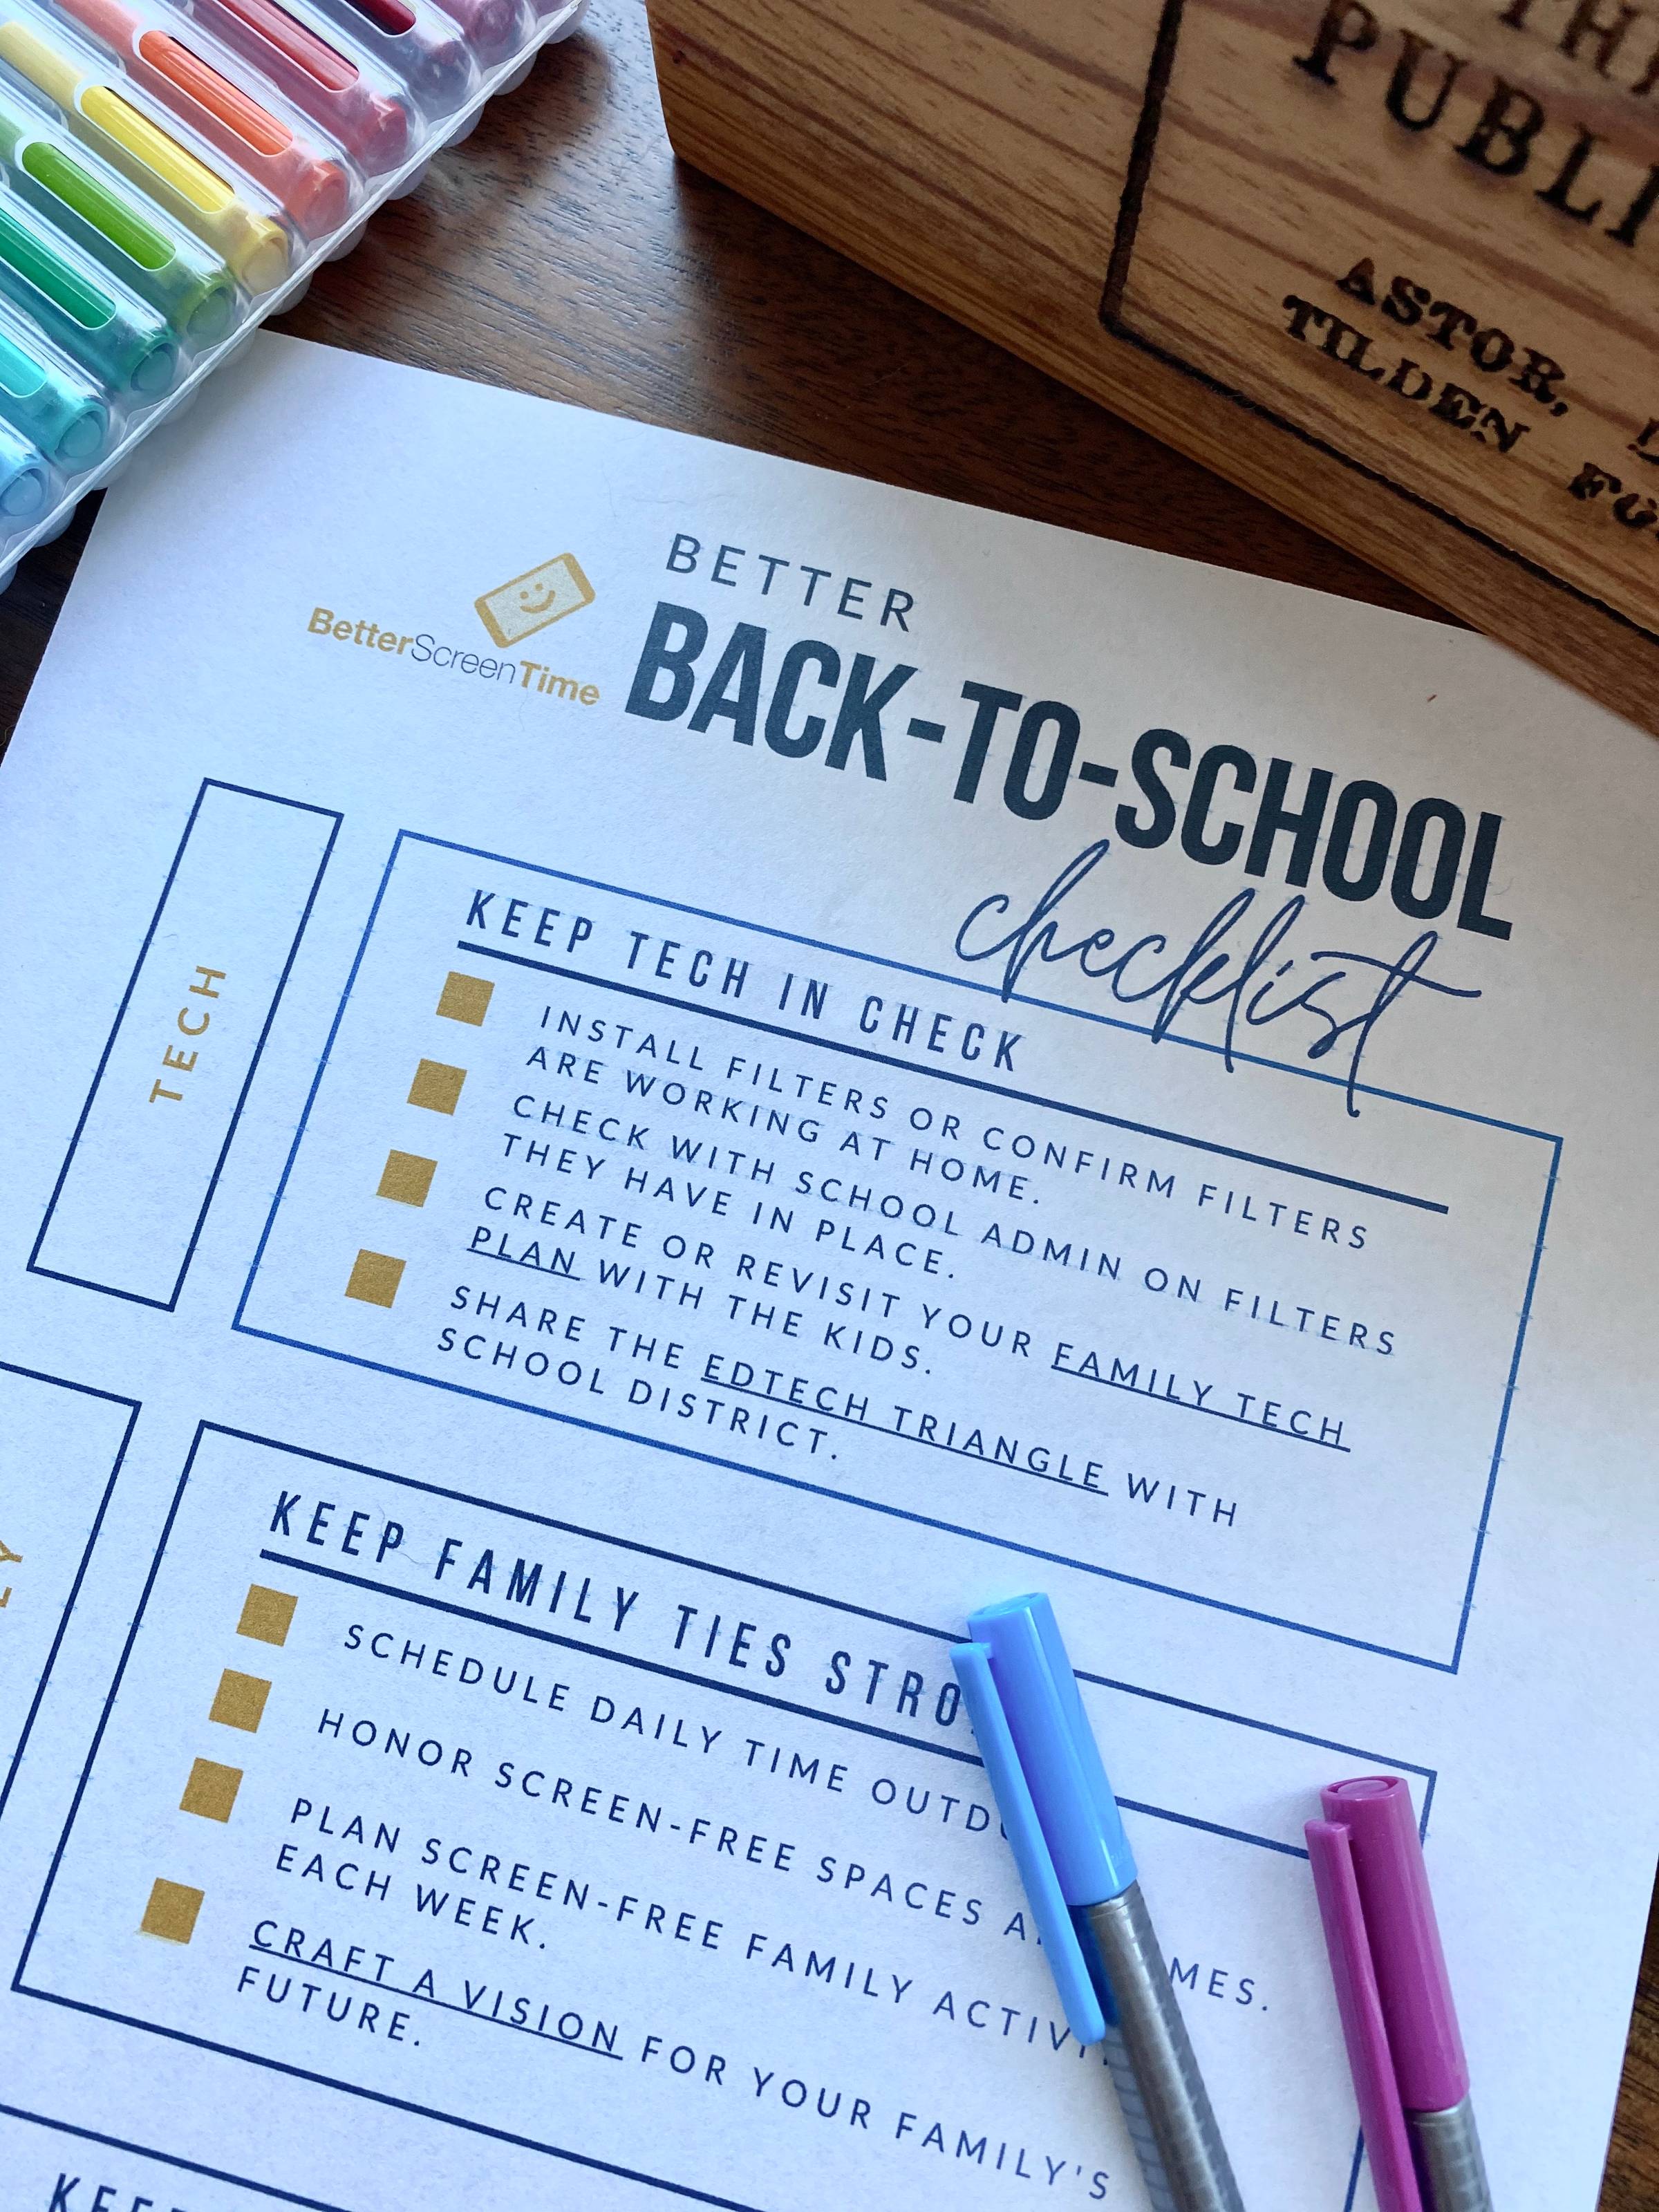 PUBLI
ASTOR,
TILDEN
BetterScreenTime
BETTER
BACK-TO-SCHOOL
checklist
TECH
KEEP TECH IN CHECK
INSTALL FILTERS OR CONFIRM FILTERS
ARE WORKING AT HOME.
CHECK WITH SCHOOL ADMIN ON FILTERS
THEY HAVE IN PLACE.
CREATE OR REVISIT YOUR FAMILY TECH
PLAN WITH THE KIDS.
SHARE THE EDTECH TRIANGLE WITH
SCHOOL DISTRICT.
KEEP FAMILY TIES STRO
SCHEDULE DAILY TIME OUTD
HONOR SCREEN-FREE SPACES A MES.
PLAN SCREEN-FREE FAMILY ACTIVI
EACH WEEK.
CRAFT A VISION FOR YOUR FAMILY'S
FUTURE.
KEEP